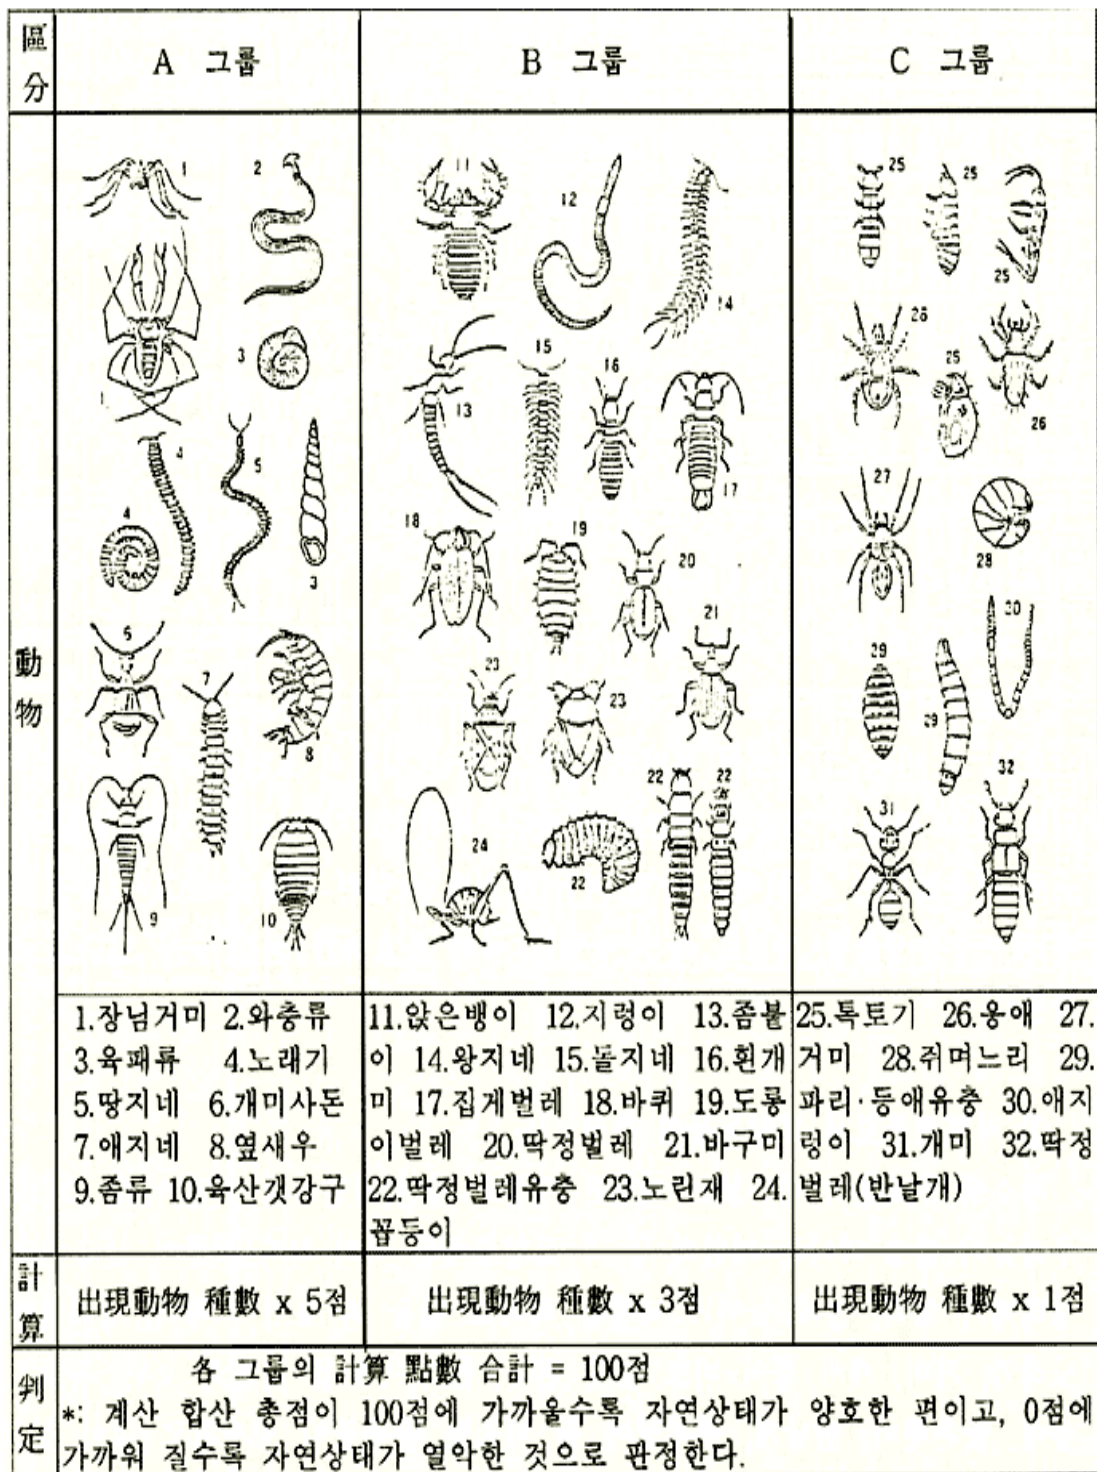 區分
A 그룹
B 그룹
C 그룹
動物
1 2
1 3
4 5
4 3
6 7
8
9 10
12 14
13 15 16
17
18 19 20
21
23 23
22 22
24 22
25 25
25
26 25
26
27
28
29 30
29
31 32
1.장님거미 2.와충류
3.육패류 4.노래기
5.땅지네 6.개미사돈
7.애지네 8.옆새우
9.좀류 10.육산갯강구
11.앉은뱅이 12.지렁이 13.좀붙
이 14.왕지네 15.돌지네 16.흰개
미 17.집게벌레 18.바퀴 19.도롱
이벌레 20.딱정벌레 21.바구미
22.딱정벌레유충 23.노린재 24.
꼽등이
25.톡토기 26.응애 27.
거미 28.쥐며느리 29.
파리·등애유충 30.애지
렁이 31.개미 32.딱정
벌레(반날개)
計算
出現動物 種數 x 5점
出現動物 種數 x 3점
出現動物 種數 x 1점
判定
各 그룹의 計算 點數 合計 = 100점
*: 계산 합산 총점이 100점에 가까울수록 자연상태가 양호한 편이고, 0점에
가까워 질수록 자연상태가 열악한 것으로 판정한다.